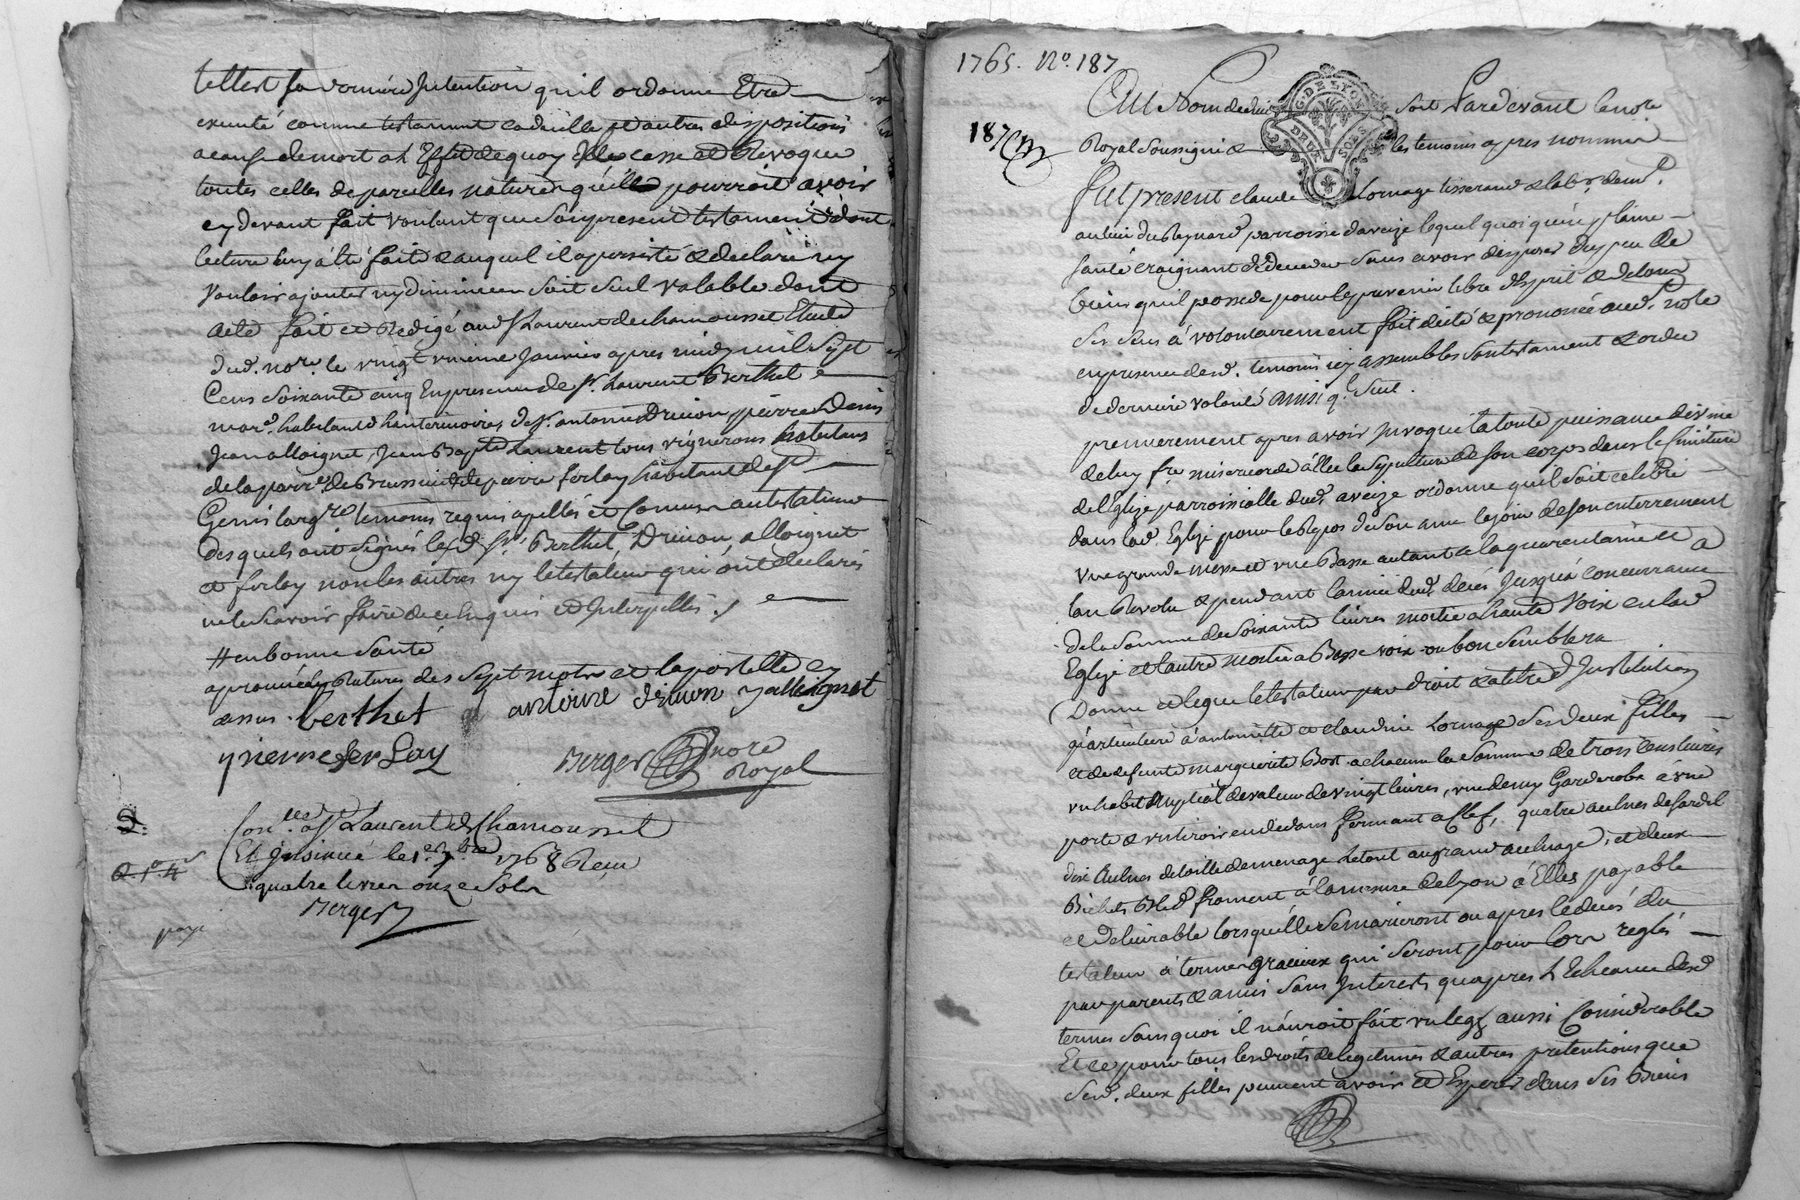 telle est sa derniere Intention quil ordonne Etre
executé comme testament codicille et autres dispositions
a cause de mort a L Effet de quoy Il casse et Revoque
toutes celles de pareilles natures quil pourroit avoir
cy devant fait voulant que son present testament dont
lecture luy à été fait et auquel il a persisté et declaré ny
vouloir ajouter ny diminuer soit seul valable dont
acte fait et Redigé aud St Laurent de chamousset Etude
dud. nore. le vingt unieme Janvier apres midy mil Sept
Cens Soixante cinq En presence de sr. Laurent Berthet
mard. habitant d'hauterivoires de sr. antoine Drivon, pierre Denis
Jean alloignet, Jean Bapte Laurent tous vignerons habitans
de la parre. de Brussieu et de pierre ferlay habitant de st
Genis largre. temoins requis apellés et Connus autestateur
desquels ont signés lesd. sr. Berthet, Drivon, alloignet
et ferlay non les autres ny le testateur qui ont declarés
ne le sçavoir faire de ce Enquis et Interpellés ./
# en bonne santé
aprouvé les Ratures des sept mots et l'apostille cy
dessus. berthet antoine drivon J alloignet
pierre ferlay
Berger nore Royal
2.
Conlée. a St Laurent de Chamousset
Et Insinué le 1er. 7bre 1768 Reçu
quatre livres onze sols
Berger
paye
1765. No. 187
187
Au Nom de dieu soit Pardevant le nore
G. DE LYON
DEUX SOLS
Royal soussigné et les temoins apres nommés
fut present claude Lornage tisserand et labr. demt.
au lieu du Reynard parroisse d'aveize lequel quoiqu'en plaine
santé craignant de deceder sans avoir disposer du peu de
biens qu'il possede pour le prevenir libre d'Esprit et de tous
ses sens à volontairement fait dicté et prononcée aud. nore
en presence desd. temoins icy assemblés son testament et ordre
de derniere volonté ainsi q. suit.
premierement apres avoir Invoqué la toute puissance divine
de luy fre. misericorde à Elu la sepulture de son corps dans le simitiere
de l'Eglize parroissialle dud. aveize ordonne quil soit celebré
dans lad. Eglize pour le Repos de son ame le jour de son enterrement
une grande messe et une Basse autant a la quarentaine et a
lan Revolu et pendant l'année dud. deces Jusqu'à concurrance
de la somme de soixante livres moitié a haute voix en lad
Eglize et l'autre moitié a Basse voix ou bon semblera
Donne et legue le testateur par droit et atitre d'Institution
particuliere à antoinette et claudine Lornage ses deux filles
et de defunte marguerite Bost a chacune la somme de trois cens livres
un habit Nuptial de valeur de vingt livres, une demy Garderobe à une
porte et un tiroir en dedans fermant a Clef, quatre aulnes de sardil
dix Aulnes de toille de menage Le tout au grand aulnage, et deux
Bichets Bled froment à la mesure de Lyon à Elles payable
et delivrable lorsqu'elle se marieront ou apres le deces du
testateur à termes gracieux qui seront pour lors reglés
par parents et amis sans Interests qu'apres L Echeance desd
termes sans quoi il n'auroit fait un legs aussi Considerable
Et ce pour tous les droits de legitimes et autres pretentions que
sesd. deux filles peuvent avoir et Esperer dans ses biens